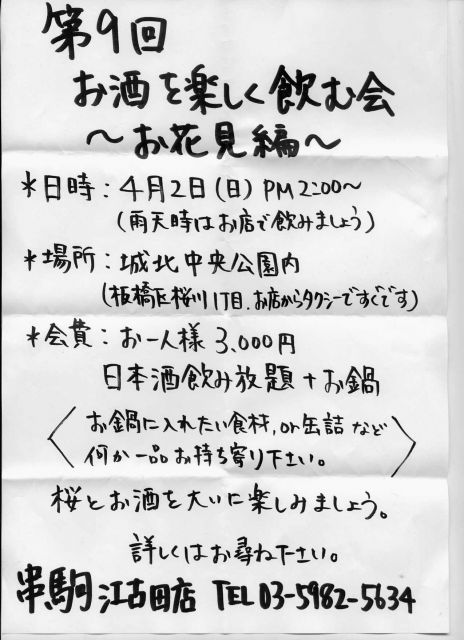 第9回
お酒を楽しく飲む会
～お花見編～
*日時：4月2日(日)PM2:00～
(雨天時はお店で飲みましょう)
*場所：城北中央公園内
(板橋区桜川1丁目.お店からタクシーですぐです)
*会費：お一人様 3,000円
日本酒飲み放題+お鍋
お鍋に入れたい食材,or缶詰など
何か一品お持ち寄り下さい。
桜とお酒を大いに楽しみましょう。
詳しくはお尋ね下さい。
串駒 江古田店 TEL 03-5982-5634